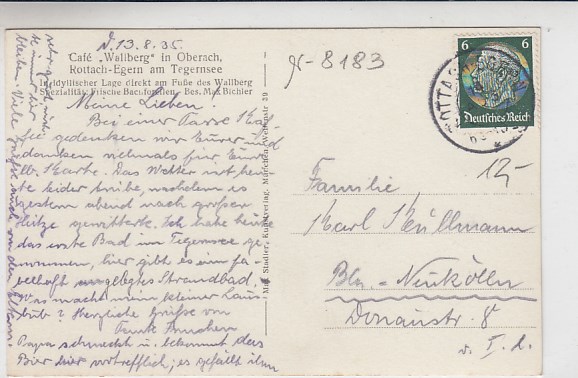 d. 13.8.35.
Café „Wallberg" in Oberach,
Rottach-Egern am Tegernsee
In idyllischer Lage direkt am Fuße des Wallberg
Spezialität: Frische Bachforellen Bes. Max Bichler
Meine Lieben!
Bei einer Tasse Kaf-
fee gedenken wir Eurer und
danken vielmals für Eure
lb. Karte. Das Wetter ist heu-
te leider trübe, nachdem es
gestern abend nach großer
Hitze gewitterte. Ich habe heute
das erste Bad im Tegernsee ge-
nommen, hier gibt es ein fa-
belhaft angelegtes Strandbad,
was macht mein kleiner Laus-
bub? Herzliche Grüße von
Tante
Papa schmeckt u. bekommt das
Bier hier vortrefflich; es gefällt ihm
sehr gut und
bleiben. Viele
Max Stadler, Kunstverlag, München,
6 6
Deutsches Reich
ROTTACH
N-8183
12,-
Familie
Karl Küllmann
Bln.-Neukölln
Donaustr. 8
v. I. l.